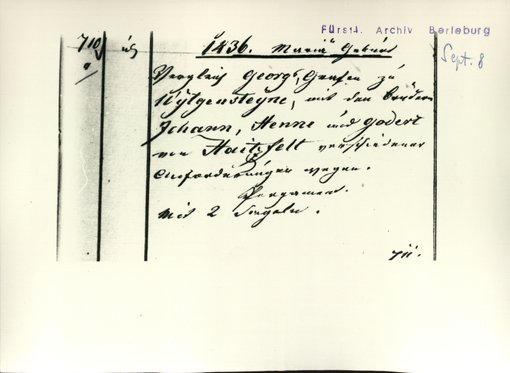 Fürstl. Archiv Berleburg
Sept. 8
710
1436. Mariä Geburt
Vergleich Georgs, Grafen zu
Wytgensteyne, mit den Brüdern
Johann, Henne und Godert
von Haitzfelt verschiedener
Anforderungen wegen.
Pergament.
Mit 2 Siegeln.
711.